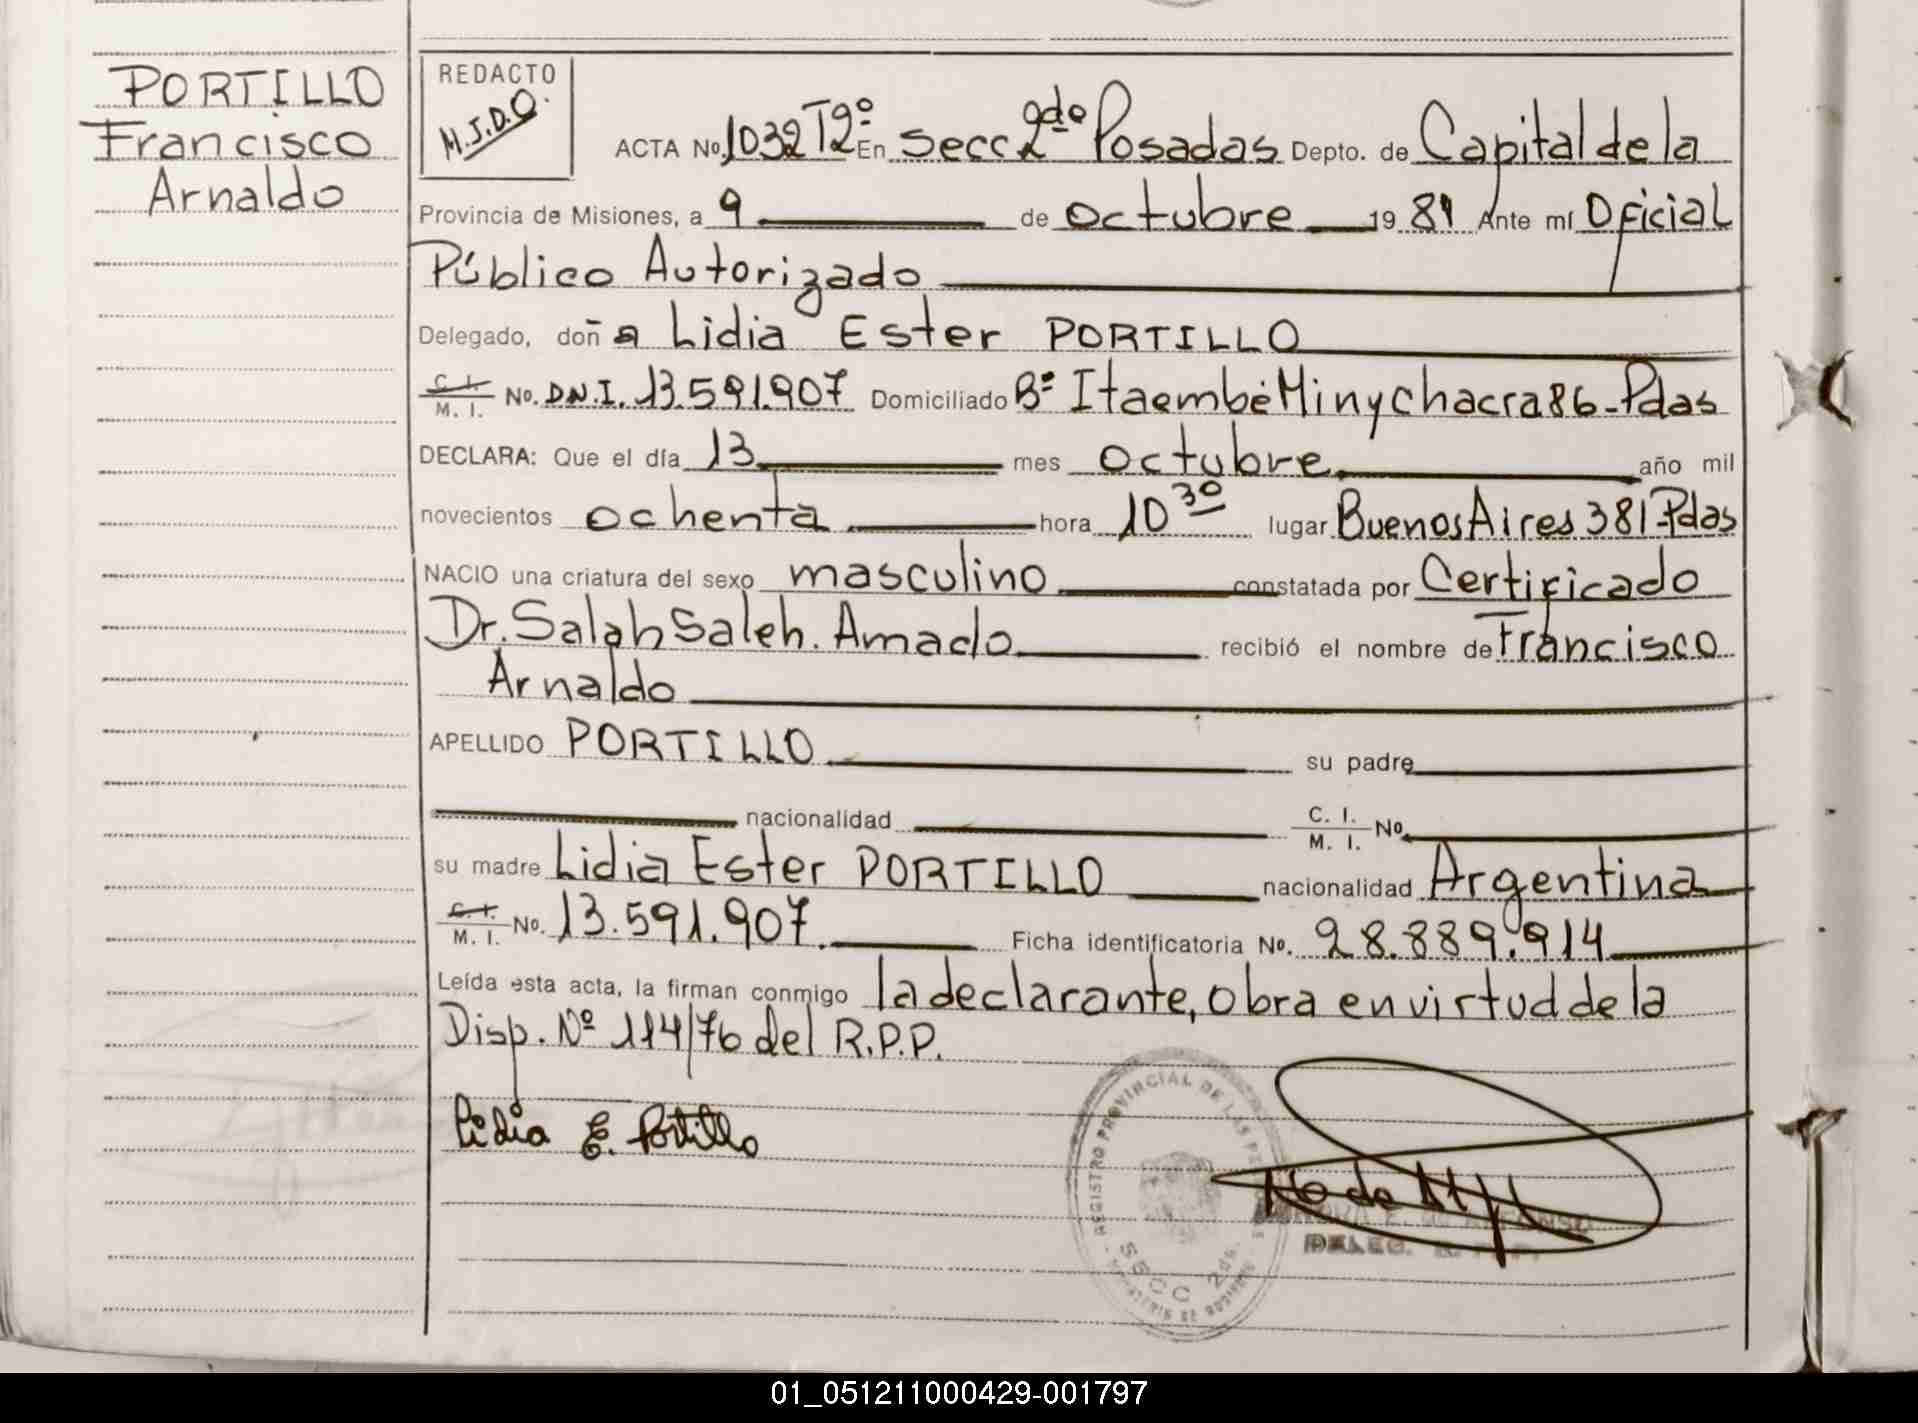 PORTILLO
Francisco
Arnaldo
REDACTO
M.J.D.O.
ACTA No. 1032 T2º En secc 2da Posadas Depto. de Capital de la
Provincia de Misiones, a 9 de octubre 1981 Ante mí Oficial
Público Autorizado
Delegado, doña Lidia Ester PORTILLO
C. I. / M. I. No. D.N.I. 13.591.907 Domiciliado Bº Itaembé Miny chacra 86-Pdas
DECLARA: Que el día 13 mes octubre año mil
novecientos ochenta hora 10 30 lugar Buenos Aires 381-Pdas
NACIO una criatura del sexo masculino constatada por Certificado
Dr. Salah Saleh. Amado recibió el nombre de Francisco
Arnaldo
APELLIDO PORTILLO su padre
nacionalidad C. I. / M. I. No.
su madre Lidia Ester PORTILLO nacionalidad Argentina
C. I. / M. I. No. 13.591.907. Ficha identificatoria No. 28.889.914
Leída esta acta, la firman conmigo la declarante, obra en virtud de la
Disp. Nº 114/76 del R.P.P.
Lidia E. Portillo
REGISTRO PROVINCIAL DE LAS
SECC 2da.
DELEG.
01_051211000429-001797